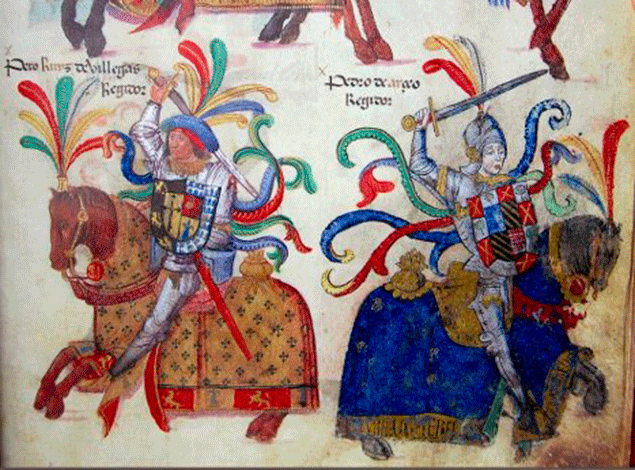 Pero Ruys de Villegas
Regidor
Pedro de arçeo
Regidor